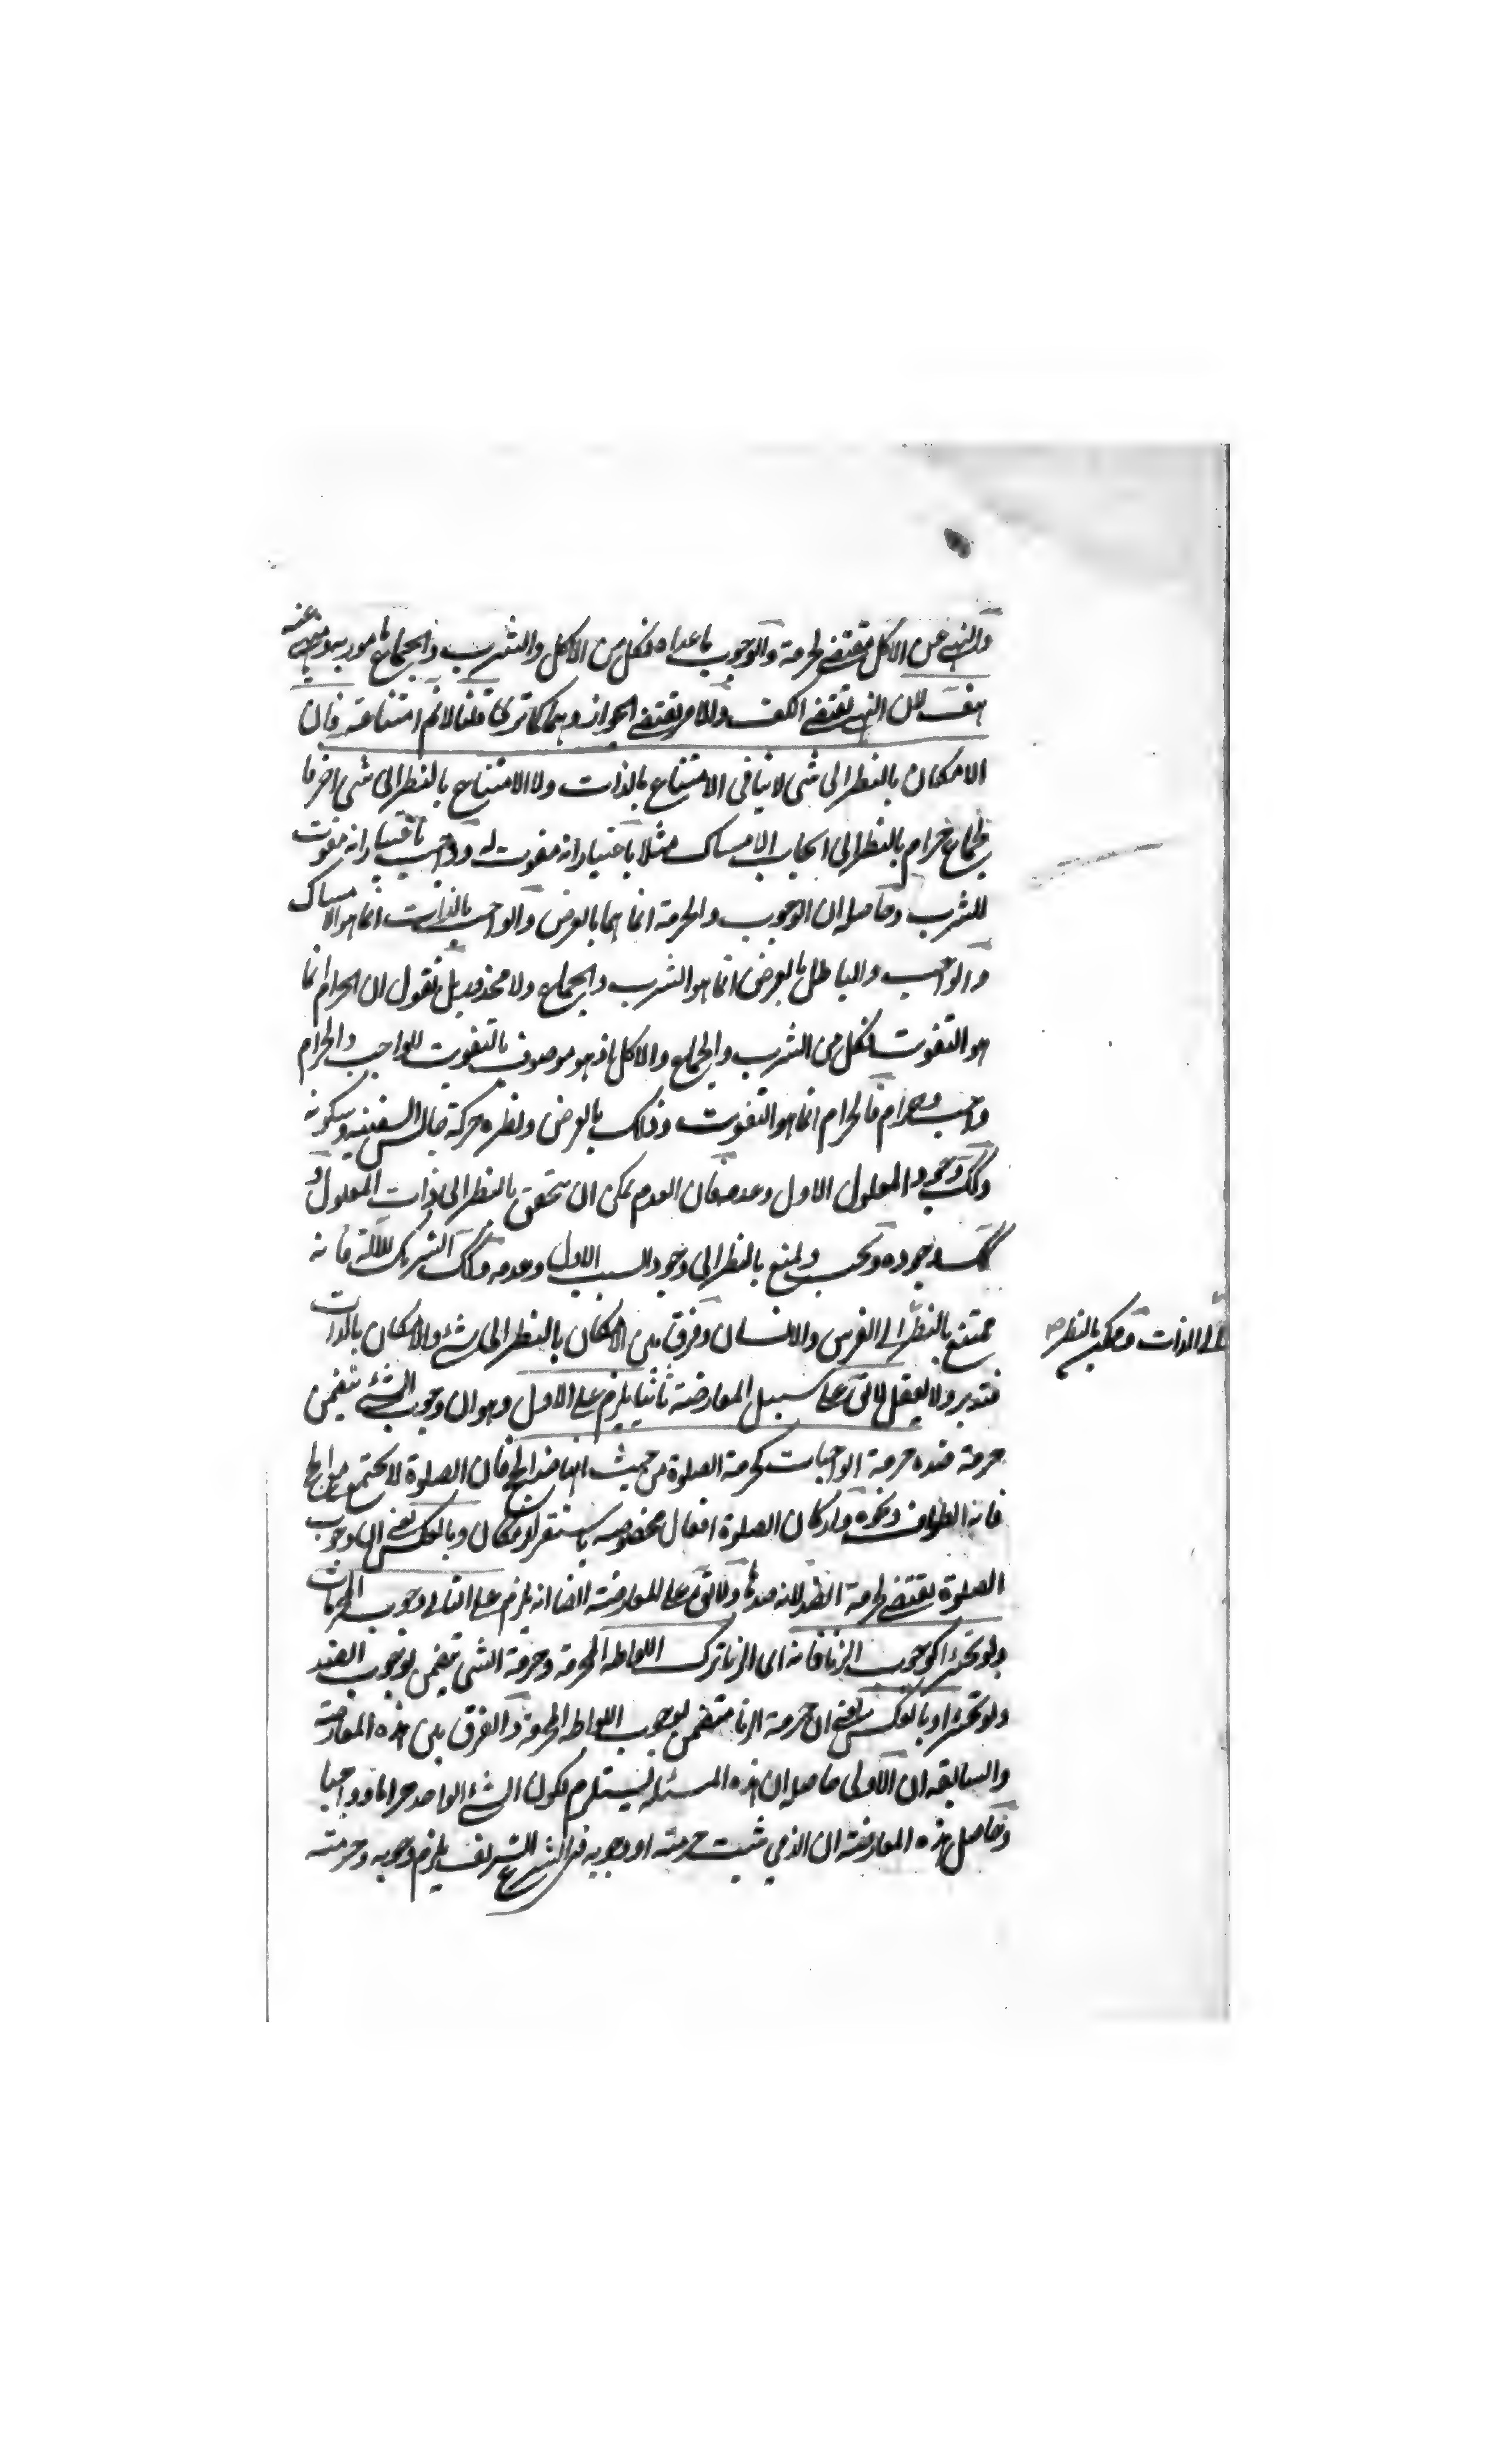 والنهى عن الاكل يقتضى لحرمة والوجوب ما عداه فكل من الاكل والشرب والجماع مامور به ومنهى عنه
هف لان النهى يقتضى الكف والامر يقتضى الجواز وهما كما ترى قلنا لا نم امتناعه فان
الامكان بالنظر الى شى لا ينافى الامتناع بالذات ولا الامتناع بالنظر الى شى اخر فا
لجماع حرام بالنظر الى ايجاب الامساك مثلا باعتبار انه مفوت له وواجب باعتبار انه مفوت
للشرب وحاصله ان الوجوب والحرمة انما هما بالعرض والواجب بالذات انما هو الامساك
والواجب والباطل بالعرض انما هو الشرب والجماع ولا محذور بل نقول ان الحرام انما
هو التفوت فكل من الشرب والجماع والاكل اذ هو موصوف بالتفويت للواجب والحرام
واجب وحرام فالحرام انما هو التفوت وذلك بالعرض ونظيره حركة جالس السفينه وسكونه
وكك وجود المعلول الاول وعدمه فان العدم يمكن ان يتحقق بالنظر الى ذات المعلول و
كك وجوده ويجب ويمتنع بالنظر الى وجود السبب الاول وعدمه وكك الشريك للاله فانه
ممتنع بالنظر الى الفرس والانسان وفرق بين الامكان بالنظر الى شئ والامكان بالذات
الى الذات وممكن بالنظر صح
فتدبر ولا يعقل لا يق على سبيل المعارضة ثانيا يلزم على الاول وهو ان وجوب الشئ يتضمن
حرمة ضده حرمة الواجبات كحرمة الصلوة من حيث انها ضد الحج فان الصلوة لا تجتمع مع الحج
فانه الطواف ونحوه واركان الصلوة افعال مخصوصه باستقرار مكان وبالعكس يعنى ان وجوب
الصلوة يقتضى لحرمة الضد لانه ضدها ولا يق على المعارضة ايضا انه يلزم على الثانى وجوب المحرمات
ولو تخييرا كوجوب الزنا فانه اى الزنا ترك اللواطه المحرمة وحرمة الشى يتضمن لوجوب الضد
ولو تخييرا وبالعكس يعنى ان حرمة الزنا متضمن لوجوب اللواطه المحرمة والفرق بين هذه المعارضة
والسابقه ان الاولى حاصله ان هذه المسئله يستلزم لكون الشئ الواحد حراما وواجبا
وحاصل هذه المعارضة ان الذى يثبت حرمته او وجوبه فى الشرع الشريف يلزم وجوبه وحرمته